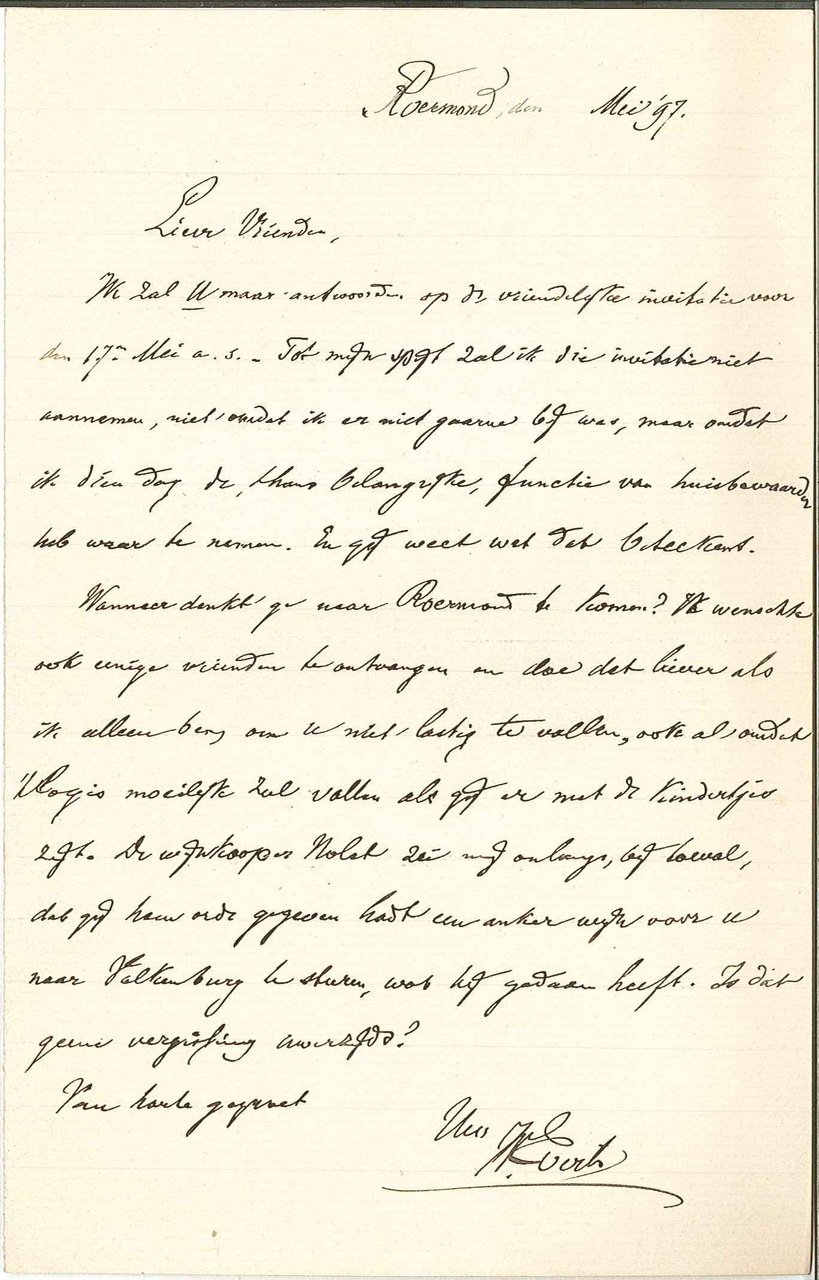 Roermond, den Mei '97.
Lieve Vrienden,
Ik zal U maar antwoorden op de vriendelijke invitatie voor
den 17n Mei a. s. - Tot mijn spijt zal ik die invitatie niet
aannemen, niet omdat ik er niet gaarne bij was, maar omdat
ik dien dag de, thans belangrijke, functie van huisbewaarder
heb waar te nemen. En gij weet wat dat beteekent.
Wanneer denkt ge naar Roermond te komen? Ik wenschte
ook eenige vrienden te ontvangen en doe dat liever als
ik alleen ben, om u niet lastig te vallen, ook al omdat
't logies moeilijk zal vallen als gij er met de kindertjes
zijt. De wijnkooper Nolst zei mij onlangs, bij toeval,
dat gij hem orde gegeven hadt een anker wijn voor u
naar Valkenburg te sturen, wat hij gedaan heeft. Is dat
geene vergissing uwerzijds?
Van harte gegroet
Uw